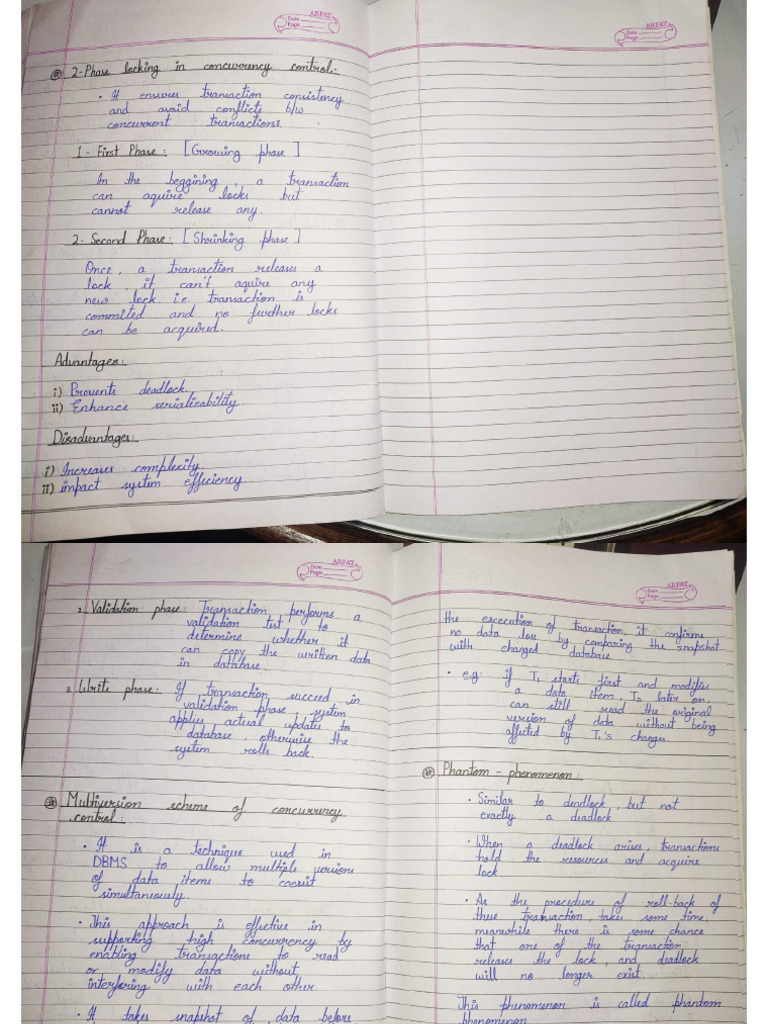 ARFAT
Date
Page
ARFAT
Date
Page
2-Phase locking in concurrency control:
• It ensures transaction consistency
and avoid conflicts b/w
concurrent transactions.
1- First Phase: [Growing phase]
In the beggining, a transaction
can aquire locks but
cannot release any.
2- Second Phase: [Shrinking phase]
Once, a transaction releases a
lock, it can't aquire any
new lock i.e. transaction is
committed and no further locks
can be acquired.
Advantages:
i) Prevents deadlock.
ii) Enhance serializability.
Disadvantages:
i) Increases complexity
ii) impact system efficiency
ARFAT
Date
Page
ARFAT
Date
Page
2. Validation phase: Transaction performs a
validation test to
determine whether it
can copy the written data
in database.
3. Write phase: If transaction succeed in
validation phase, system
applies actual update to
database otherwise the
system rolls back.
Multiversion scheme of concurrency
control:
• It is a technique used in
DBMS to allow multiple versions
of data items to coexist
simultaneously.
• This approach is effective in
supporting high concurrency by
enabling transactions to read
or modify data without
interfering with each other.
• It takes snapshot of data before
the excecution of transaction, it confirms
no data loss by comparing the snapshot
with changed database
• e.g: if T₁ starts first and modifies
a data item, T₂ later on,
can still read the original
version of data without being
affected by T₁'s changes.
Phantom - phenomenon:
• Similar to deadlock, but not
exactly a deadlock
• When a deadlock arises, transactions
hold the resources and acquire
lock
• As the procedure of roll-back of
these transaction, takes some time,
meanwhile there is some chance
that one of the transaction
releases the lock, and deadlock
will no longer exist.
This phenomenon is called phantom
phenomenon